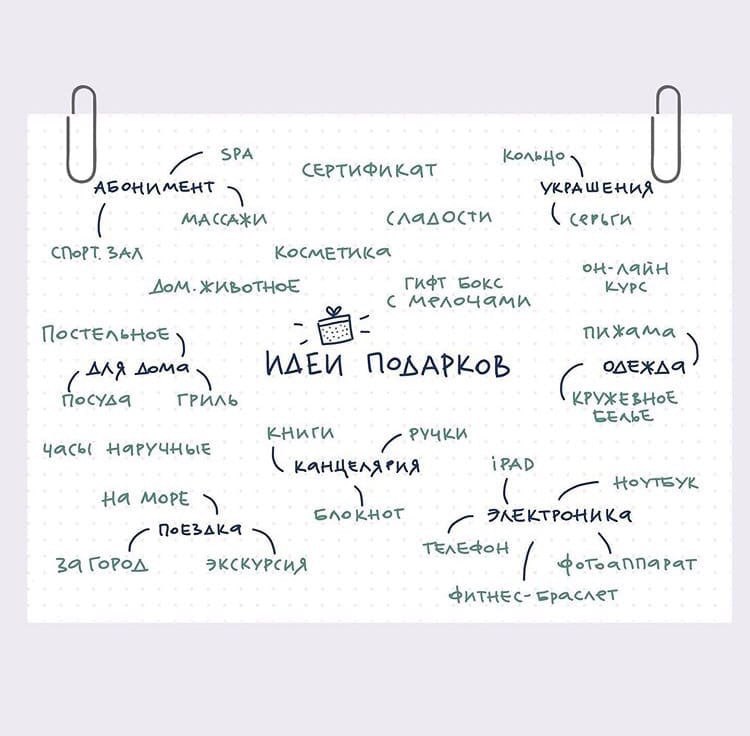 SPA
СЕРТИФИКАТ
КОЛЬЦО
АБОНИМЕНТ
УКРАШЕНИЯ
МАССАЖИ
СЛАДОСТИ
СЕРЬГИ
СПОРТ. ЗАЛ
КОСМЕТИКА
ОН-ЛАЙН
КУРС
ДОМ. ЖИВОТНОЕ
ГИФТ БОКС
С МЕЛОЧАМИ
ПОСТЕЛЬНОЕ
ДЛЯ ДОМА
ПОСУДА
ГРИЛЬ
ИДЕИ ПОДАРКОВ
ПИЖАМА
ОДЕЖДА
КРУЖЕВНОЕ
БЕЛЬЕ
ЧАСЫ НАРУЧНЫЕ
КНИГИ
РУЧКИ
КАНЦЕЛЯРИЯ
БЛОКНОТ
iPAD
НОУТБУК
ЭЛЕКТРОНИКА
ТЕЛЕФОН
ФОТОАППАРАТ
ФИТНЕС-БРАСЛЕТ
НА МОРЕ
ПОЕЗДКА
ЗА ГОРОД
ЭКСКУРСИЯ